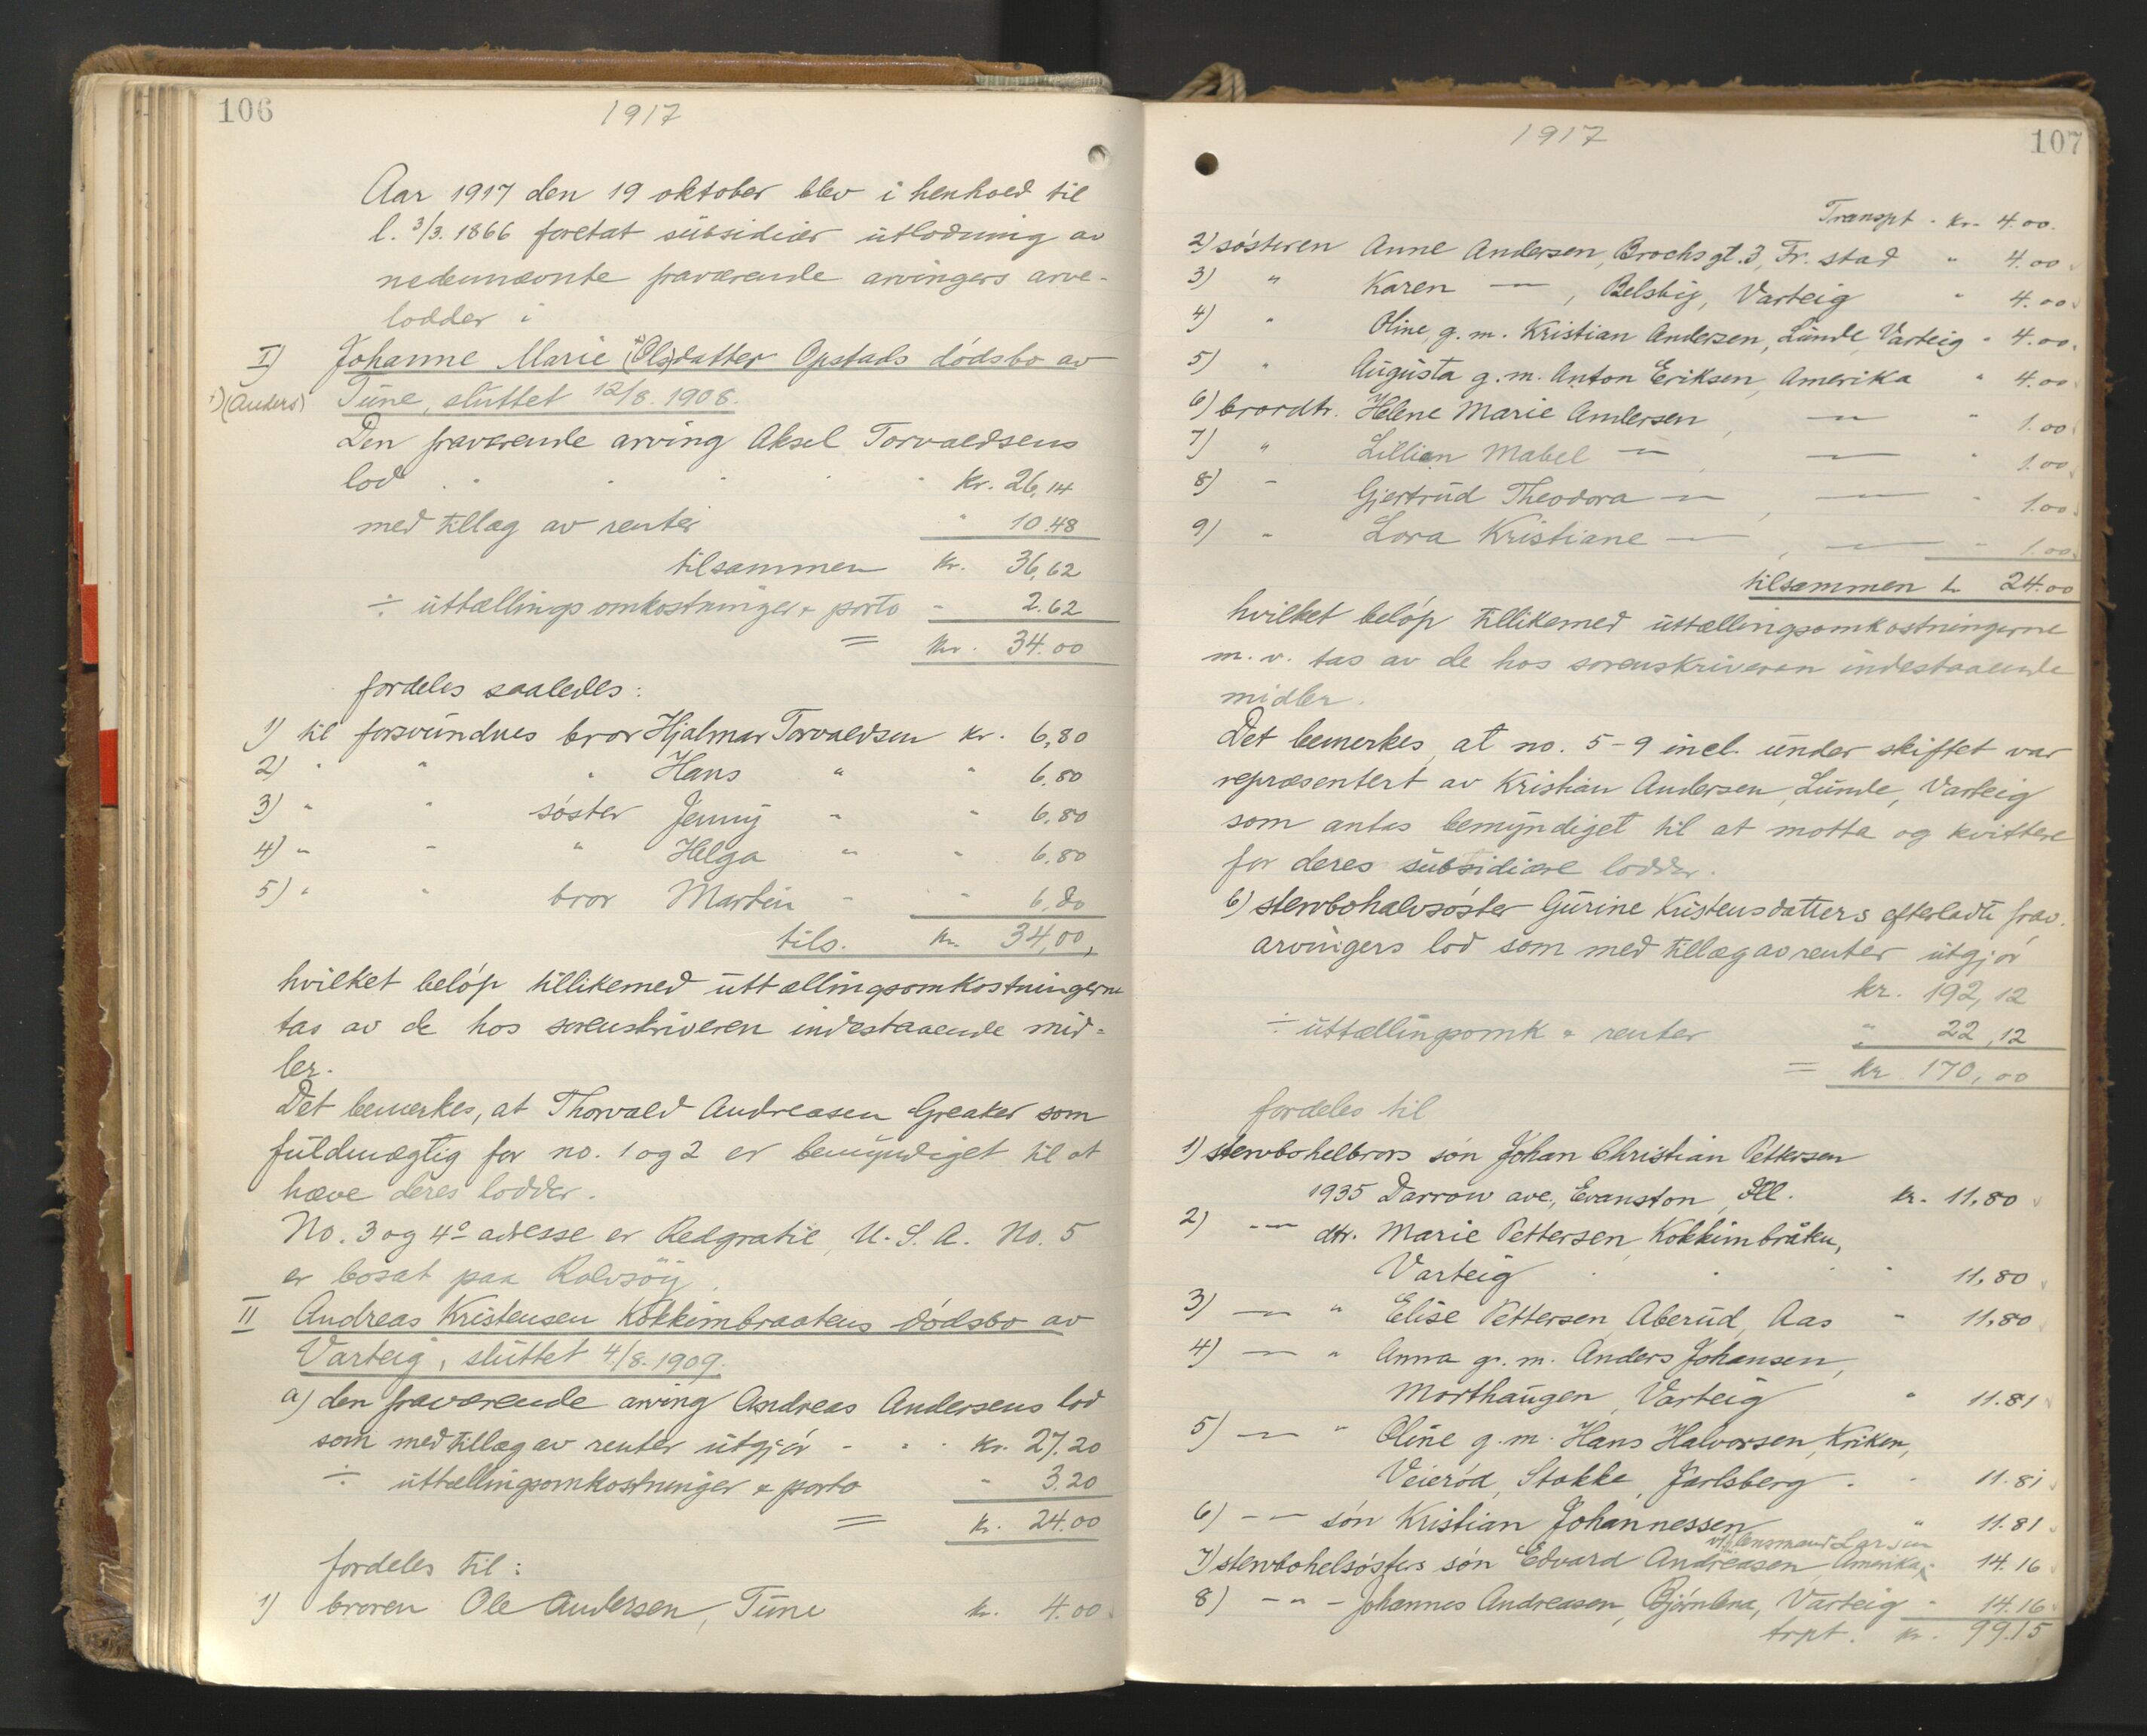 106
1917
Aar 1917 den 19 oktober blev i henhold til
l. 3/3. 1866 foretat subsidiær utlodning av
nedennævnte fraværende arvingers arve-
lodder i
I) Johanne Marie (Ols)datter Opstads dödsbo av
1) (Anders) Tune, sluttet 12/8. 1908.
Den fraværende arving Aksel Torvaldsens
lod . . . . . Kr. 26,14
med tillæg av renter " 10.48
tilsammen Kr. 36,62
÷ uttællingsomkostninger & porto - 2.62
= Kr. 34.00
fordeles saaledes:
1) til forsvundnes bror Hjalmar Torvaldsen Kr. 6,80
2) " " " Hans " " 6,80
3) " " söster Jenny " " 6,80
4) " " " Helga " " 6,80
5) " " bror Martin " " 6,80
tils. Kr. 34,00,
hvilket belöp tillikemed uttællingsomkostningerne
tas av de hos sorenskriveren indestaaende mid=
ler.
Det bemerkes, at Thorvald Andreasen Greaker som
fuldmægtig for no. 1 og 2 er bemyndiget til at
hæve deres lodder.
No. 3 og 4s adresse er Redgratie, U.S.A. No. 5
er bosat paa Rolvsöy.
II Andreas Kristensen Kokkimbraatens dödsbo av
Varteig, sluttet 4/8. 1909.
a) den fraværende arving Andreas Andersens lod
som med tillæg av renter utgjör - . . Kr. 27.20
÷ uttællingsomkostninger & porto " 3.20
= Kr. 24.00
fordeles til:
1) broren Ole Andersen, Tune Kr. 4.00
1917
107
Transpt. Kr. 4.00.
2) sösteren Anne Andersen, Brochsgt. 3, Fr.stad " 4.00
3) " Karen —"—, Belsby, Varteig " 4.00
4) " Oline, g.m. Kristian Andersen, Lunde, Varteig " 4.00
5) " Augusta g.m. Anton Eriksen, Amerika " 4.00
6) brordtr. Helene Marie Andersen, —"— " 1.00
7) " Lillian Mabel —"—, —"— " 1.00
8) " Gjertrud Theodora —"—, —"— " 1.00
9) " Lora Kristiane —"—, —"— " 1.00
tilsammen kr 24.00
hvilket belöp tillikemed uttællingsomkostningerne
m.v. tas av de hos sorenskriveren indestaaende
midler.
Det bemerkes, at no. 5-9 incl. under skiftet var
repræsentert av Kristian Andersen, Lunde, Varteig
som antas bemyndiget til at motta og kvittere
for deres subsidiære lodder.
b) stervbohalvsöster Gurine Kristensdatters efterladte frav.
arvingers lod som med tillæg av renter utgjör
kr. 192,12
÷ uttællingsomk & renter " 22,12
= kr 170,00
fordeles til
1) stervbohelbrors sön Johan Christian Pettersen
1935 Darrow ave, Evanston, Ill. kr. 11,80
2) —"— dtr. Marie Pettersen, Kokkimbråten,
Varteig . . . " 11,80
3) —"— " Elise Pettersen, Aberud, Aas " 11,80
4) —"— " Anna g.m. Anders Johansen,
Morthaugen, Varteig " 11.81
5) —"— " Oline g.m. Hans Halvorsen, Kriken,
Veieröd, Stokke, Jarlsberg . . 11.81
6) —"— sön Kristian Johannessen " 11.81
v/ lensmand Larsen
7) stervbohelsösters sön Edvard Andreasen, Amerika, 14.16
8) —"— - Johannes Andreasen, Björnlena, Varteig " 14.16
trpt. kr. 99.15